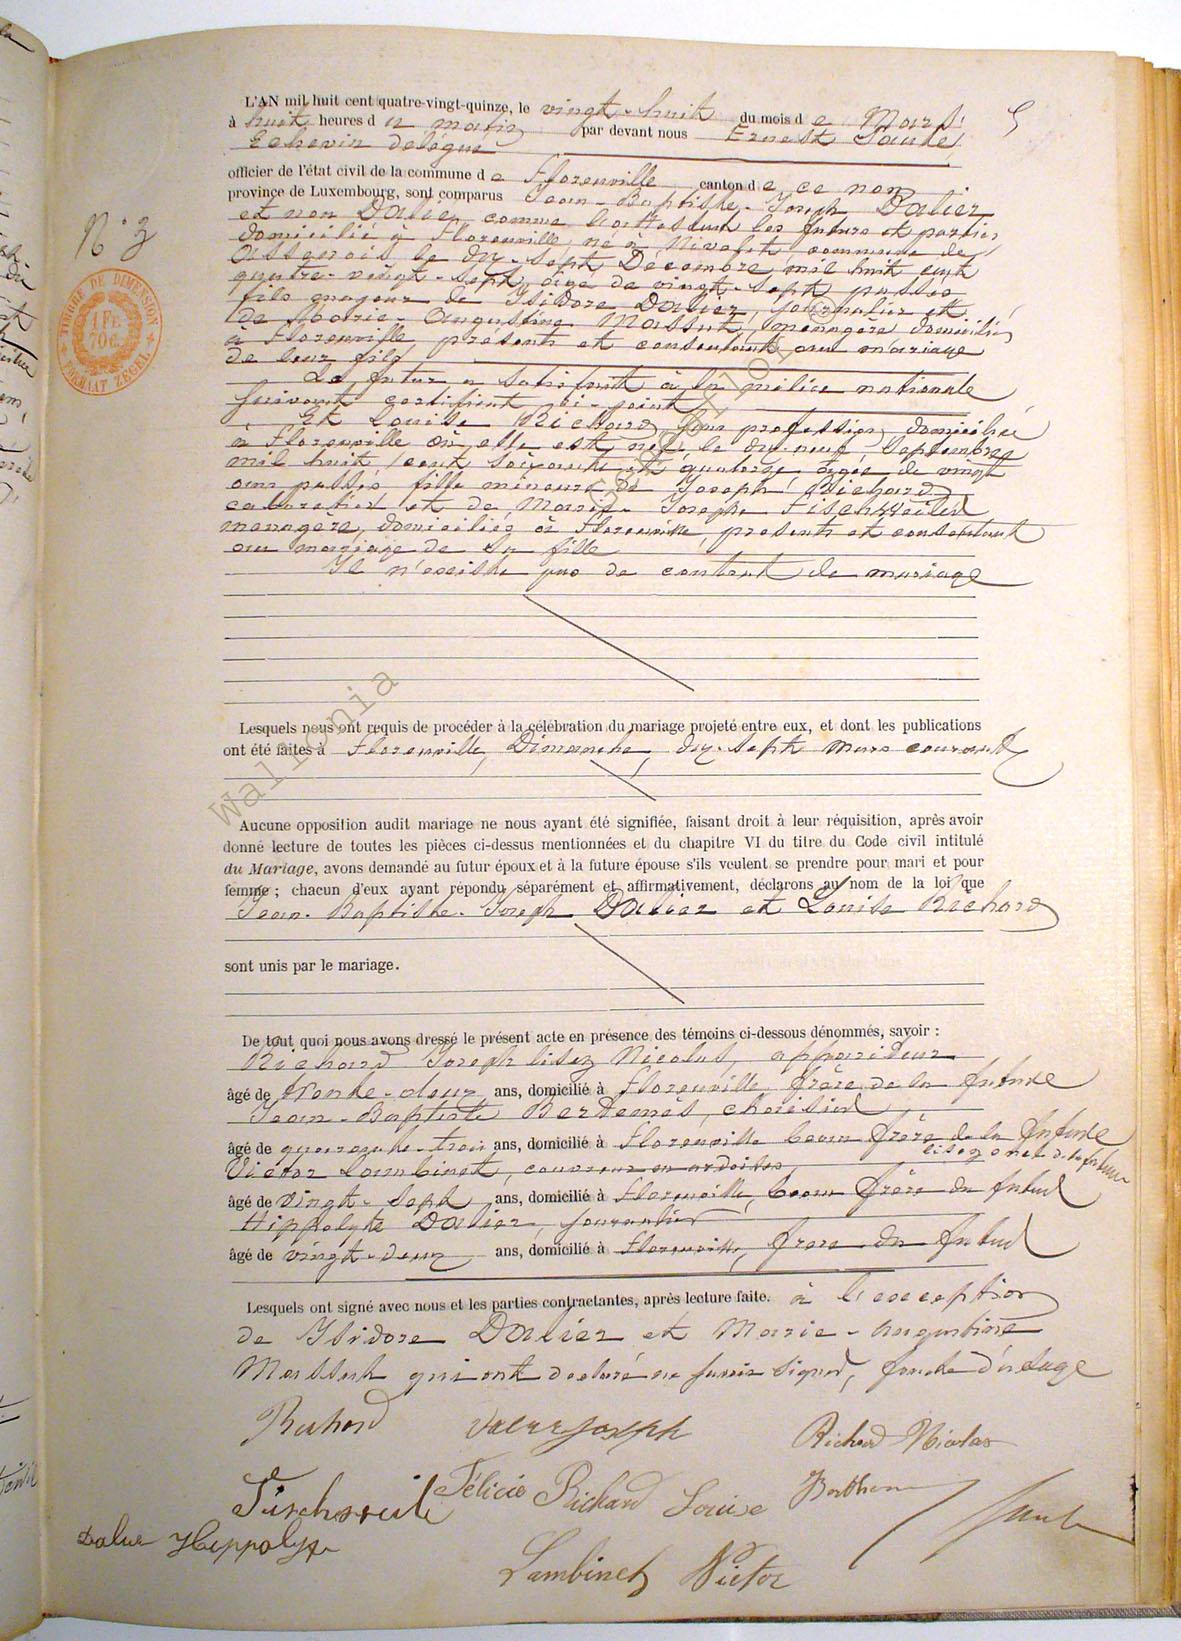 L'AN mil huit cent quatre-vingt-quinze, le vingt-huit du mois de Mars 5
à huit heures du matin par devant nous Ernest
Echevin délégué
officier de l'état civil de la commune de Florenville canton de ce nom
province de Luxembourg, sont comparus Jean-Baptiste-Joseph Dalier
N° 3
et non comme l'attestent les futurs et parties
domicilié à Florenville, né à commune de
Assenois le dix-sept Décembre mil huit cent
quatre-vingt-sept, âgé de vingt-sept passés
TIMBRE DE DIMENSION
1 FR
70 C.
FORMAAT ZEGEL
fils majeur de Isidore Dalier, journalier et
de Marie-Augustine Massut, ménagère domiciliés
à Florenville présents et consentant au mariage
de leur fils
Le futur a satisfait à la milice nationale
suivant certificat ci-joint
Et Louise Richard sans profession, domiciliée
à Florenville où elle est née le dix-neuf Septembre
mil huit cent soixante et quatorze âgée de vingt
ans passés fille mineure de Joseph Richard
cabaretier et de Marie-Josèphe
ménagère, domiciliés à Florenville, présents et consentant
au mariage de fille
Il n'existe pas de contrat de mariage
Wallonia
Lesquels nous ont requis de procéder à la célébration du mariage projeté entre eux, et dont les publications
ont été faites à Florenville, Dimanche, dix-sept mars courant
Aucune opposition audit mariage ne nous ayant été signifiée, faisant droit à leur réquisition, après avoir
donné lecture de toutes les pièces ci-dessus mentionnées et du chapitre VI du titre du Code civil intitulé
du Mariage, avons demandé au futur époux et à la future épouse s'ils veulent se prendre pour mari et pour
femme ; chacun d'eux ayant répondu séparément et affirmativement, déclarons au nom de la loi que
Jean-Baptiste-Joseph Dalier et Louise Richard
sont unis par le mariage.
De tout quoi nous avons dressé le présent acte en présence des témoins ci-dessous dénommés, savoir :
Richard Joseph lisez Nicolas, appariteur
âgé de trente-deux ans, domicilié à Florenville frère de la future
Jean-Baptiste
âgé de quarante-trois ans, domicilié à Florenville beau frère de la future
lisez oncle de la future
Victor Lambinet, couvreur en ardoises
âgé de vingt-sept ans, domicilié à Florenville, beau frère du futur
Hippolyte Dalier, journalier
âgé de vingt-deux ans, domicilié à Florenville, frère du futur
Lesquels ont signé avec nous et les parties contractantes, après lecture faite. à l'exception
de Isidore Dalier et Marie-Augustine
Massut qui ont déclaré ne savoir signer, faute d'usage
Richard Joseph Richard Nicolas
Félicie Richard Louise
Hippolyte
Lambinet Victor